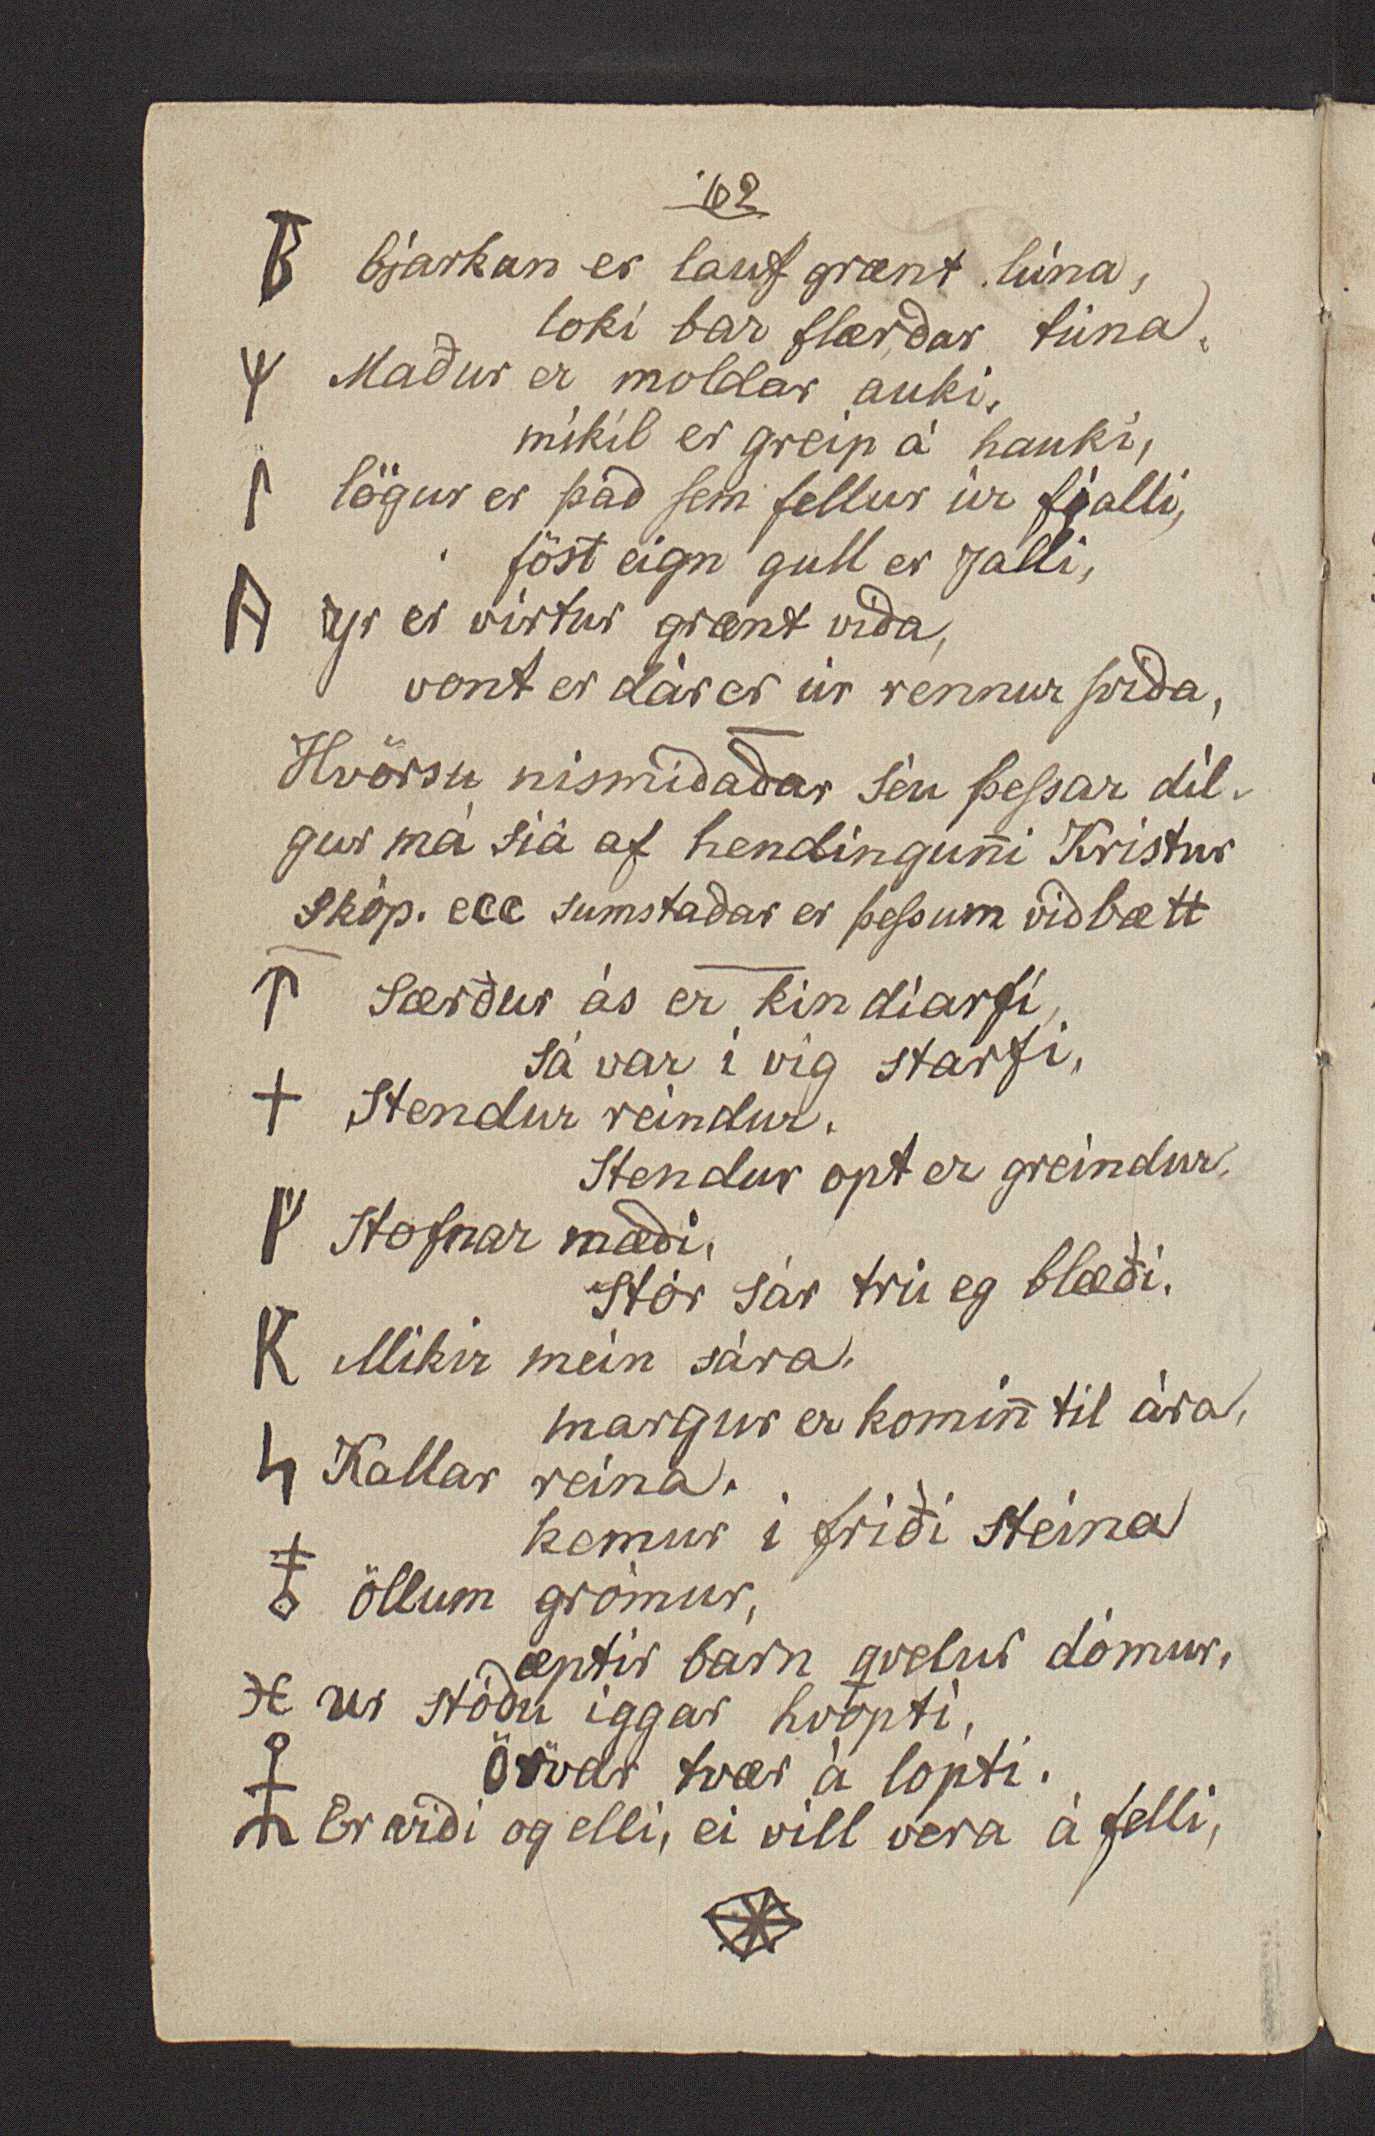 102
ᛒ bjarkan er lauf grænt lúna,
loki bar flærðar túna.
ᛘ Maður er moldar auki,
mikil er greip á hauki,
ᛚ lögur er það sem fellur úr fjalli,
föst eign gull er jalli,
yr er virtur grænt viða,
vont er dár er úr rennur sviða,
Hvörsu nismiðaðar séu þessar díl-
gur má siá af hendinguni Kristur
skóp. ecc sumstaðar er þessum viðbætt
ᛏ Særður ás er kindiarfi,
sá var í víg starfi,
ᚐ Stendur reindur.
Stendur opt er greindur.
ᚠ Stofnar mæði,
Stór sár trú eg blæði.
K Mikir mein sára.
margur er komin̄ til ára,
ᛋ Kallar reina.
kemur í friði steina
öllum grómur,
æptir barn qvelur dómur,
ur stöðu iggar hvópti,
Örvar tvær á lopti.
Er æiði og elli, ei vill vera á felli,